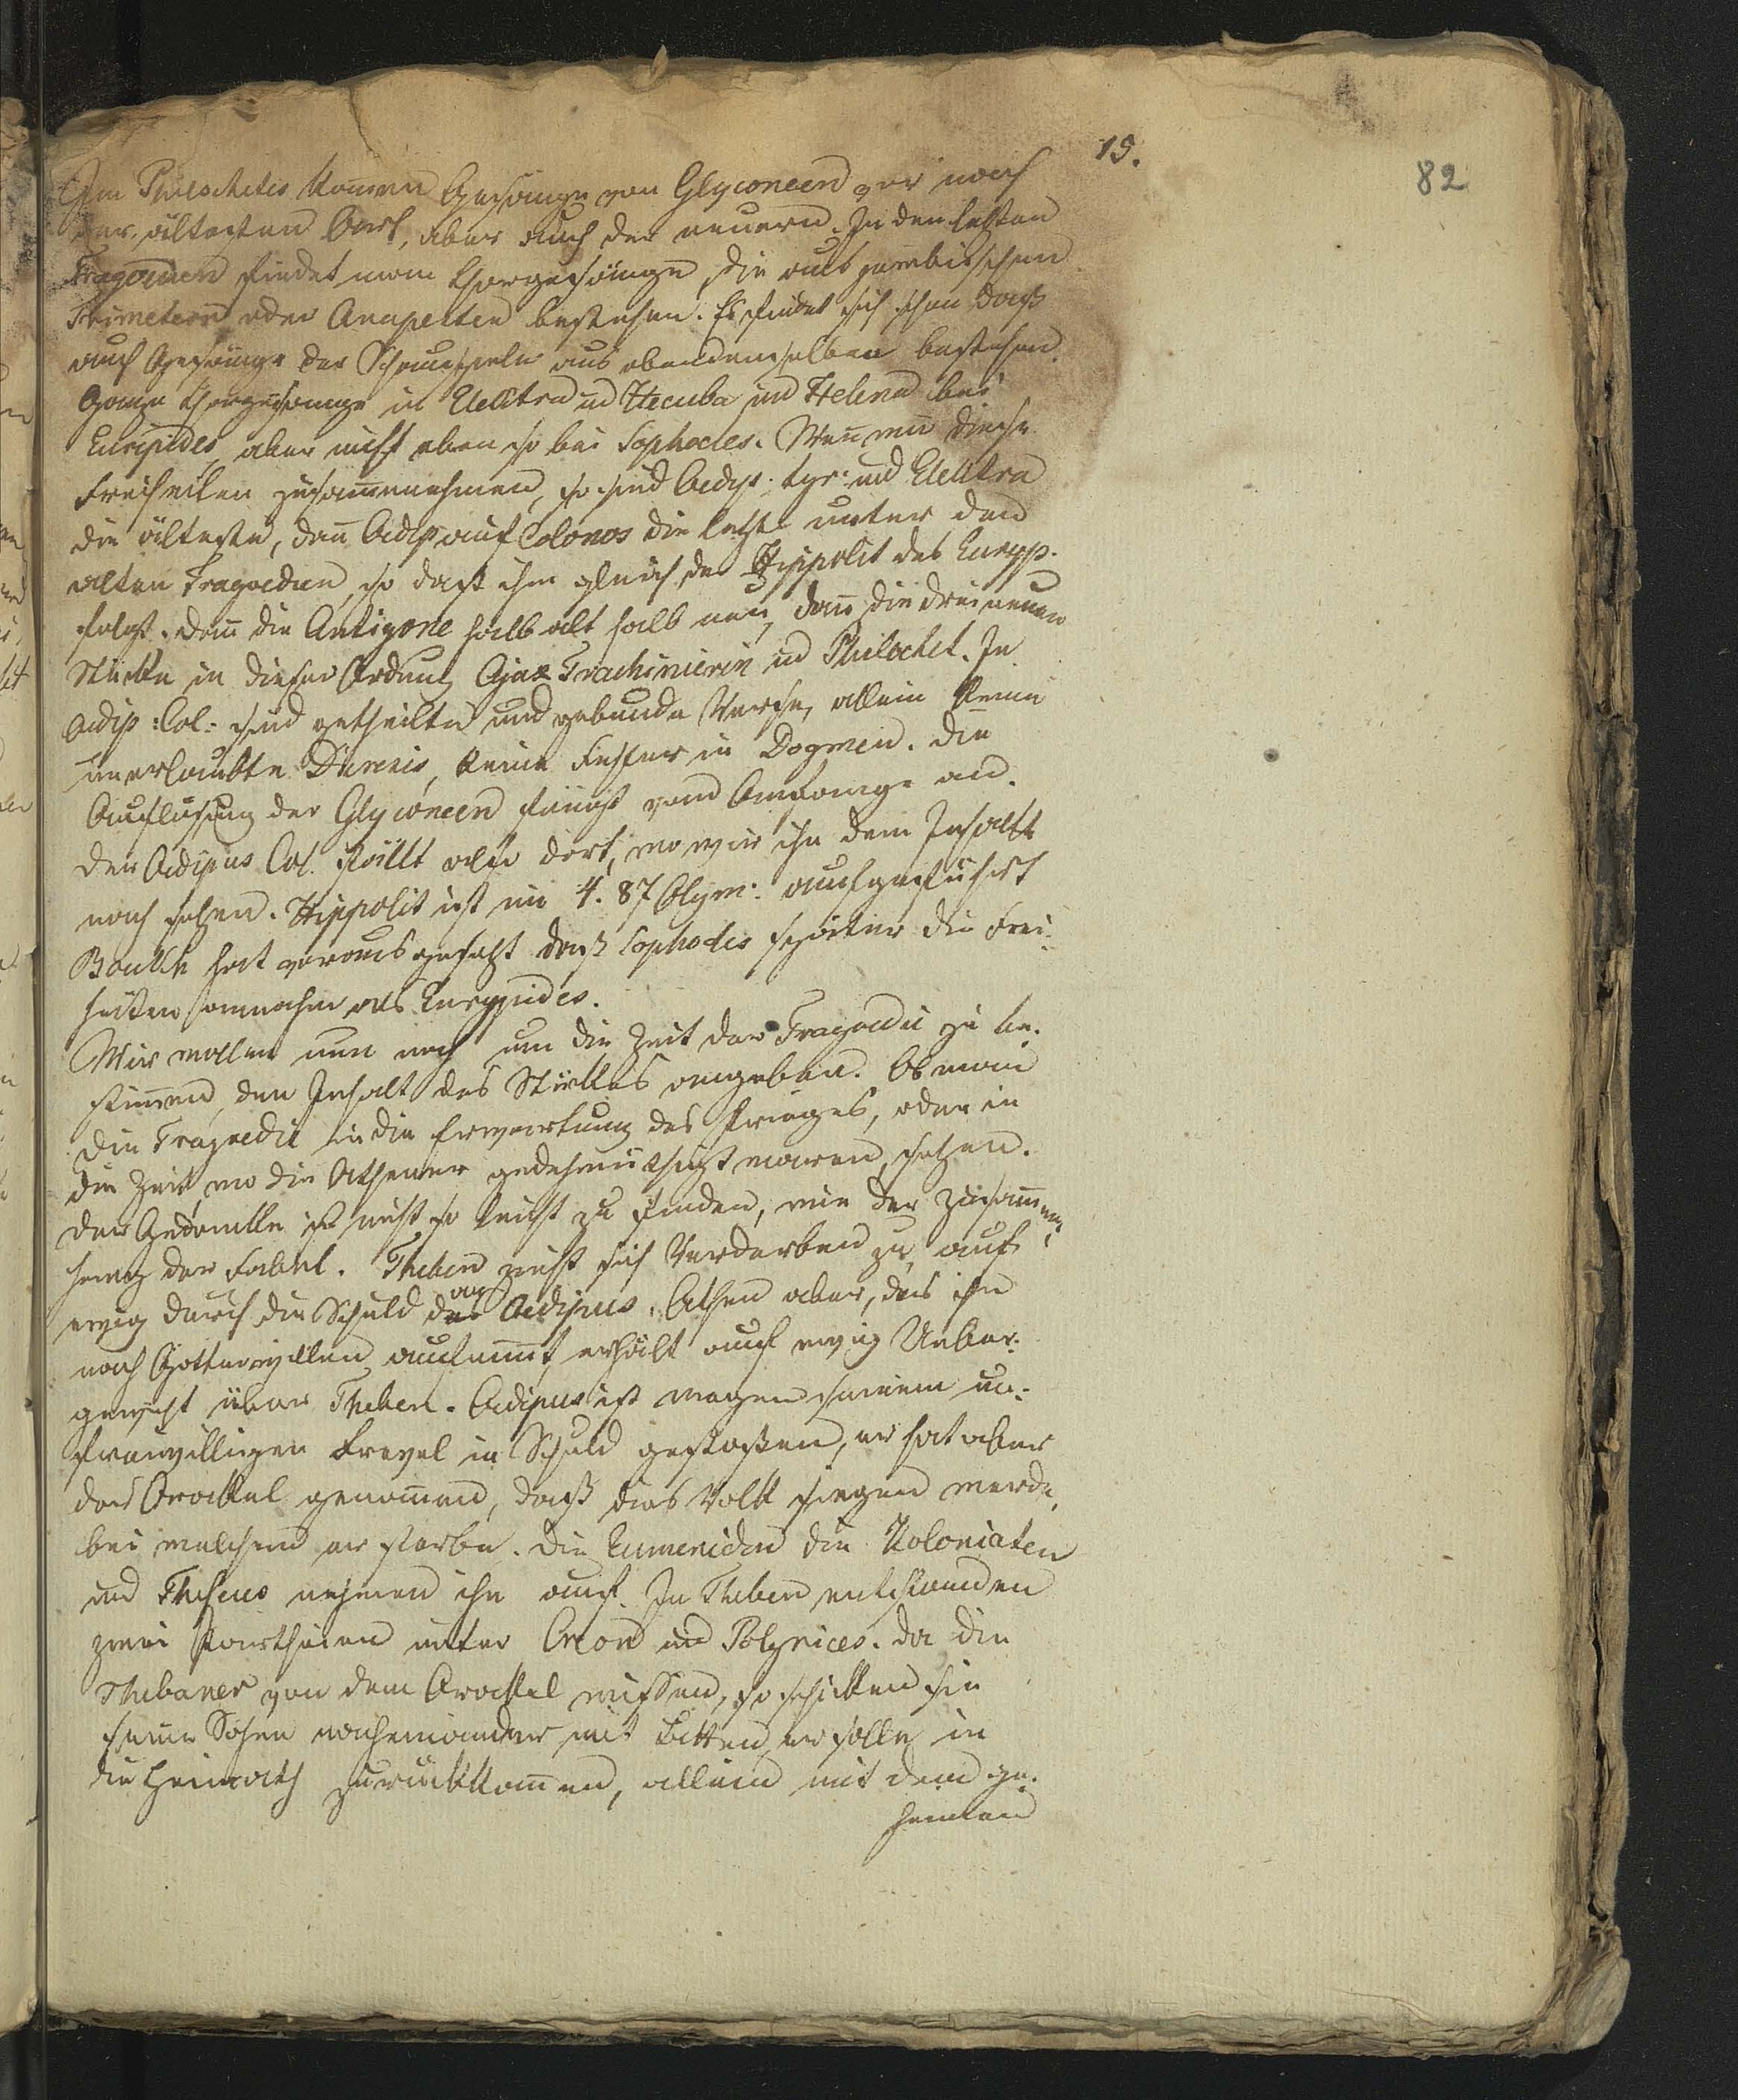 15.
82
Im Philocktetes kommen Gesänge von Glyconeen vor nach
der ältesten Art, aber auch der neuern. In den letzten
Tragoedien findet man Chorgesänge, die aus jambischen
Trimetern oder Anapesten bestehen. Es findet sich schon daß
auch Gesänge der Schauspieler aus ebendenselben bestehen.
Ganze Chorgesänge in Elektra und Hecuba und Helena bei
Euripides, aber nicht eben so bei Sophocles. Wenn wir diese
Freiheiten zusammennehmen, so sind Oedip. tyr. und Elektra
die älteste, dann Oedip auf Colonos die letzte unter den
alten Tragoedien, so daß ihm gleich der Hippolit des Euripp.
folgt. dann die Antigone halb alt halb neu, dann die drei neuen
Stücke in dieser Ordnung Ajax Trachinierin und Philoktet. In
Oedip: Col: sind getheilte und gebunde Verse, allein keine
unerlaubte Diresis, keine Fehler in Dogmien. Die
Auflösung der Glyconeen fängt vom Anfange an.
Der Oedipus Col. fällt also dort, wo wir ihn dem Inhalte
nach setzen. Hippolit ist im 4. 87 Olym: aufgeführt
Boukh hat vorausgesetzt daß Sophocles später die Frei-
heiten annahm als Eurypides.
Wir wollen nun noch um die Zeit der Tragoedie zu be-
stimmen, den Inhalt des Stückes angeben. Ob man
die Tragoedie in die Erwartung des Krieges, oder in
die Zeit, wo die Athener gedehmüthigt waren, setzen.
Der Gedanke ist nicht so leicht zu finden, wie der Zusammen-
hang der Fabel. Theben zieht sich Verderben zu, auf
ewig durch die Schuld des Oedipus. Athen aber, das ihn
nach Götterwillen aufnimmt, erhält auf ewig Ueber-
gewicht über Theben. Oedipus ist wegen seinem un-
freiwilligen Frevel in Schuld gestoßen, er hat aber
das Orackel genommen, daß das Volk siegen werde,
bei welchem er sterbe. Die Eumeniden die Koloniaten
und Theseus nehmen ihn auf. In Theben entstanden
zwei Partheien unter Creon und Polynices. Da die
Thebaner von dem Orackel wissen, so schicken sie
seine Söhne nacheinander mit Bitten, er solle in
die Heimath zurückkommen, allein mit dem ge-
heimen